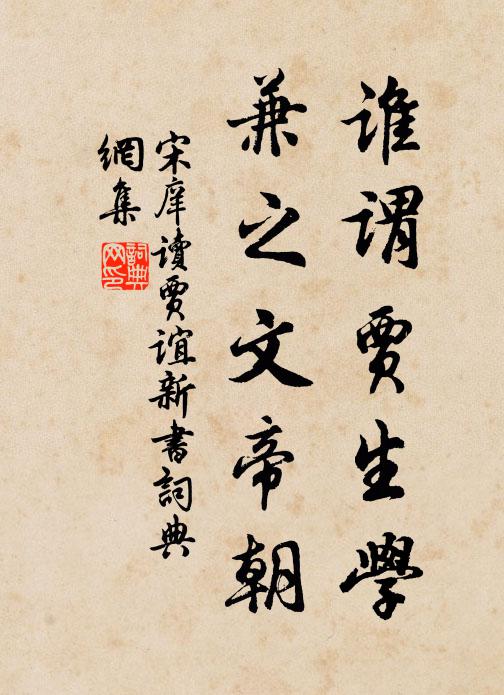 誰謂賈生學
兼之文帝朝
宋庠讀賈誼新書詞典
網集
詞典
网印